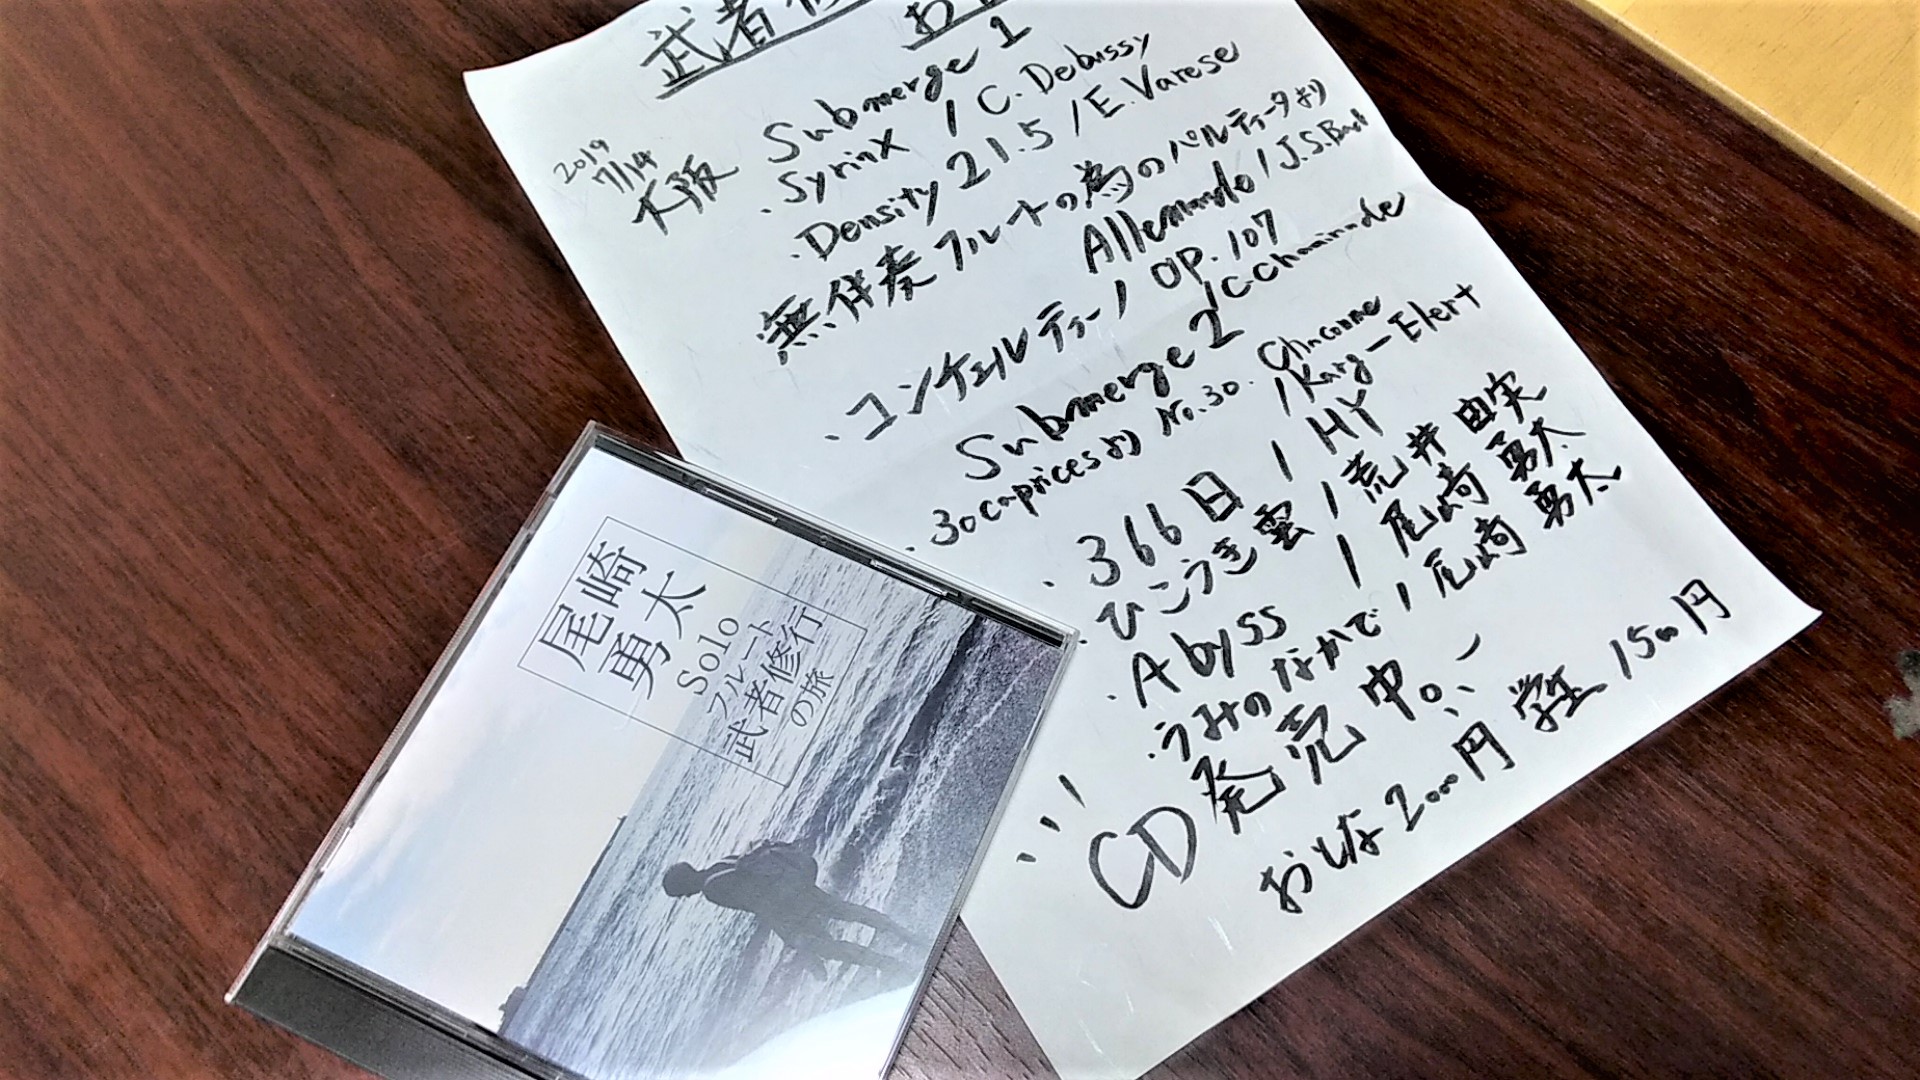 武者修
2019
7/14
大阪
Submerge 1
・Syrinx / C. Debussy
・Density 21.5 / E. Varese
無伴奏フルートの為のパルティータより
Allemande / J.S.Bach
・コンチェルティーノ Op. 107
/ C.Chaminade
Submerge 2
・30capricesより No.30. Chaconne
/ Karg-Elert
・366日 / HY
・ひこうき雲 / 荒井 由実
・Abyss / 尾崎 勇太
・うみのなかで / 尾崎 勇太
CD発売中。
おとな2000円 学生 1500円
尾崎
勇太
Solo
フルート
武者修行
の旅